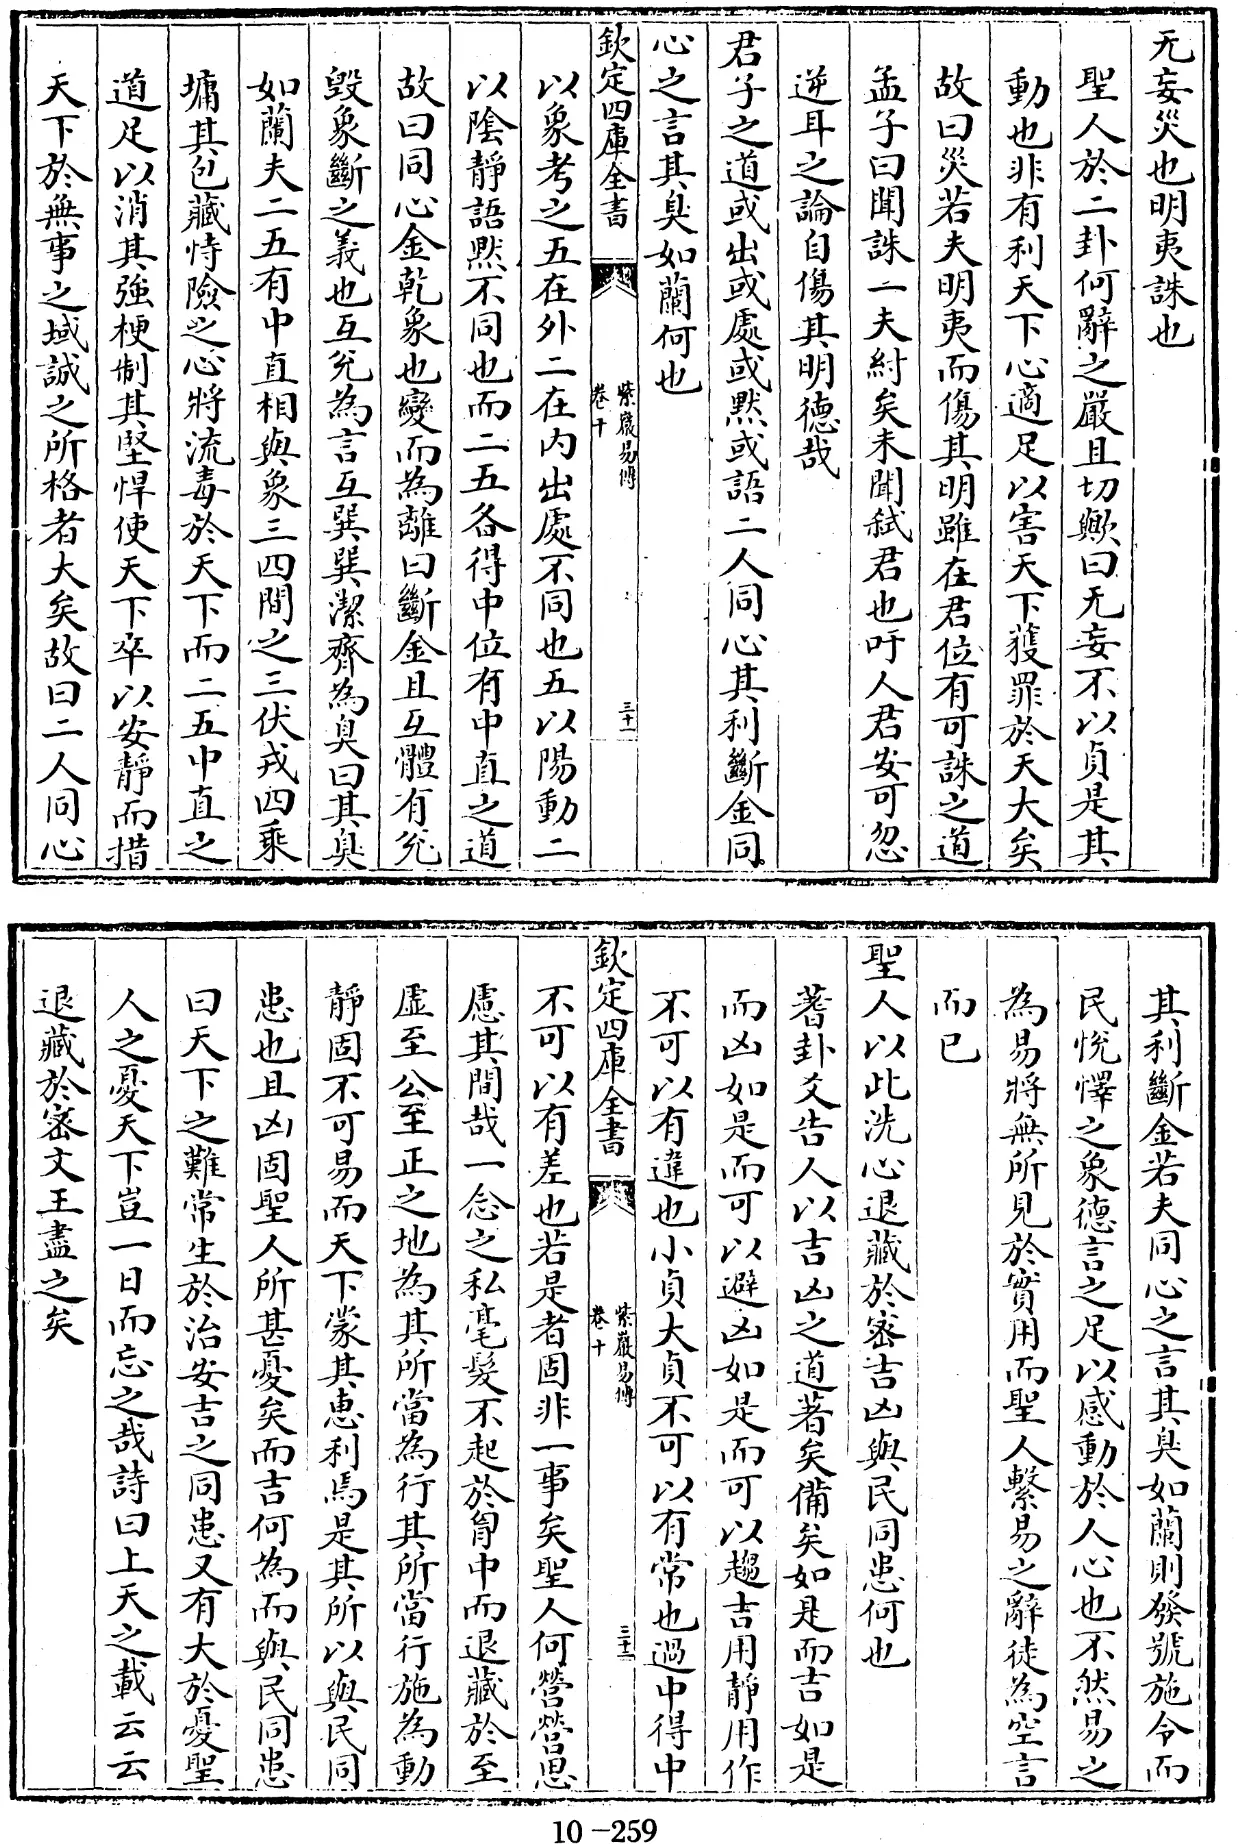 无妄災也明夷誅也
聖人於二卦何辭之嚴且切歟曰无妄不以貞是其
動也非有利天下心適足以害天下獲罪於天大矣
故曰災若夫明夷而傷其明雖在君位有可誅之道
孟子曰聞誅一夫紂矣未聞弑君也吁人君安可忽
逆耳之論自傷其明德哉
君子之道或出或處或默或語二人同心其利斷金同
心之言其臭如蘭何也
欽定四庫全書
紫巖易傳
卷十
三十一
以象考之五在外二在内出處不同也五以陽動二
以陰靜語黙不同也而二五各得中位有中直之道
故曰同心金乾象也變而為離曰斷金且互體有兊
毀象斷之義也互兊為言互巽巽潔齊為臭曰其臭
如蘭夫二五有中直相與象三四間之三伏戎四乘
墉其包藏恃險之心將流毒於天下而二五中直之
道足以消其強梗制其堅悍使天下卒以安靜而措
天下於無事之域誠之所格者大矣故曰二人同心
其利斷金若夫同心之言其臭如蘭則發號施令而
民悅懌之象德言之足以感動於人心也不然易之
為易將無所見於實用而聖人繫易之辭徒為空言
而已
聖人以此洗心退藏於宻吉凶與民同患何也
蓍卦爻告人以吉凶之道著矣備矣如是而吉如是
而凶如是而可以避凶如是而可以趨吉用靜用作
不可以有違也小貞大貞不可以有常也過中得中
欽定四庫全書
紫巖易傳
卷十
三十二
不可以有差也若是者固非一事矣聖人何營營思
慮其間哉一念之私毫髮不起於胷中而退藏於至
虚至公至正之地為其所當為行其所當行施為動
靜固不可易而天下蒙其惠利焉是其所以與民同
患也且凶固聖人所甚憂矣而吉何為而與民同患
曰天下之難常生於治安吉之同患又有大於憂聖
人之憂天下豈一日而忘之哉詩曰上天之載云云
退藏於宻文王盡之矣
10-259